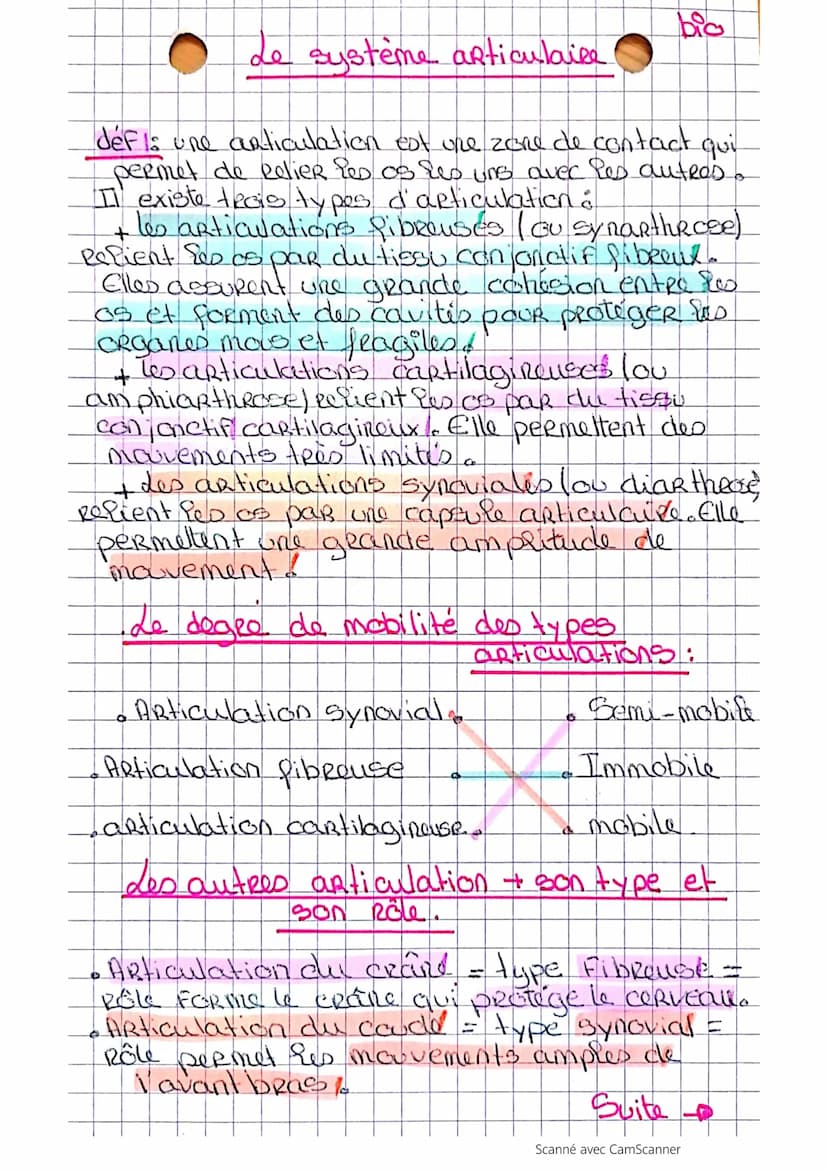 bio
Le système articulaire
déf 1: une articulation est une zone de contact qui
permet de relier les os les uns avec les autres.
Il existe trois types d'articulation :
+ les articulations fibreuses (ou synarthrose)
relient les os par du tissu conjonctif fibreux.
Elles assurent une grande cohésion entre les
os et forment des cavités pour protéger les
organes mous et fragiles.
+ les articulations cartilagineuses (ou
amphiarthrose) relient les os par du tissu
conjonctif cartilagineux. Elle permettent des
mouvements très limités.
+ Les articulations synoviales (ou diarthrose)
relient les os par une capsule articulaire. Elle
permettent une grande amplitude de
mouvement !
.Le degré de mobilité des types
articulations :
• Articulation synovial • • Semi-mobile
• Articulation fibreuse • • Immobile
• articulation cartilagineuse • • mobile
Les autres articulation + son type et
son rôle.
• Articulation du crâne = type Fibreuse =
Rôle forme le crâne qui protège le cerveau.
• Articulation du coude = type synovial =
Rôle permet les mouvements amples de
l'avant bras.
Suite →
Scanné avec CamScanner